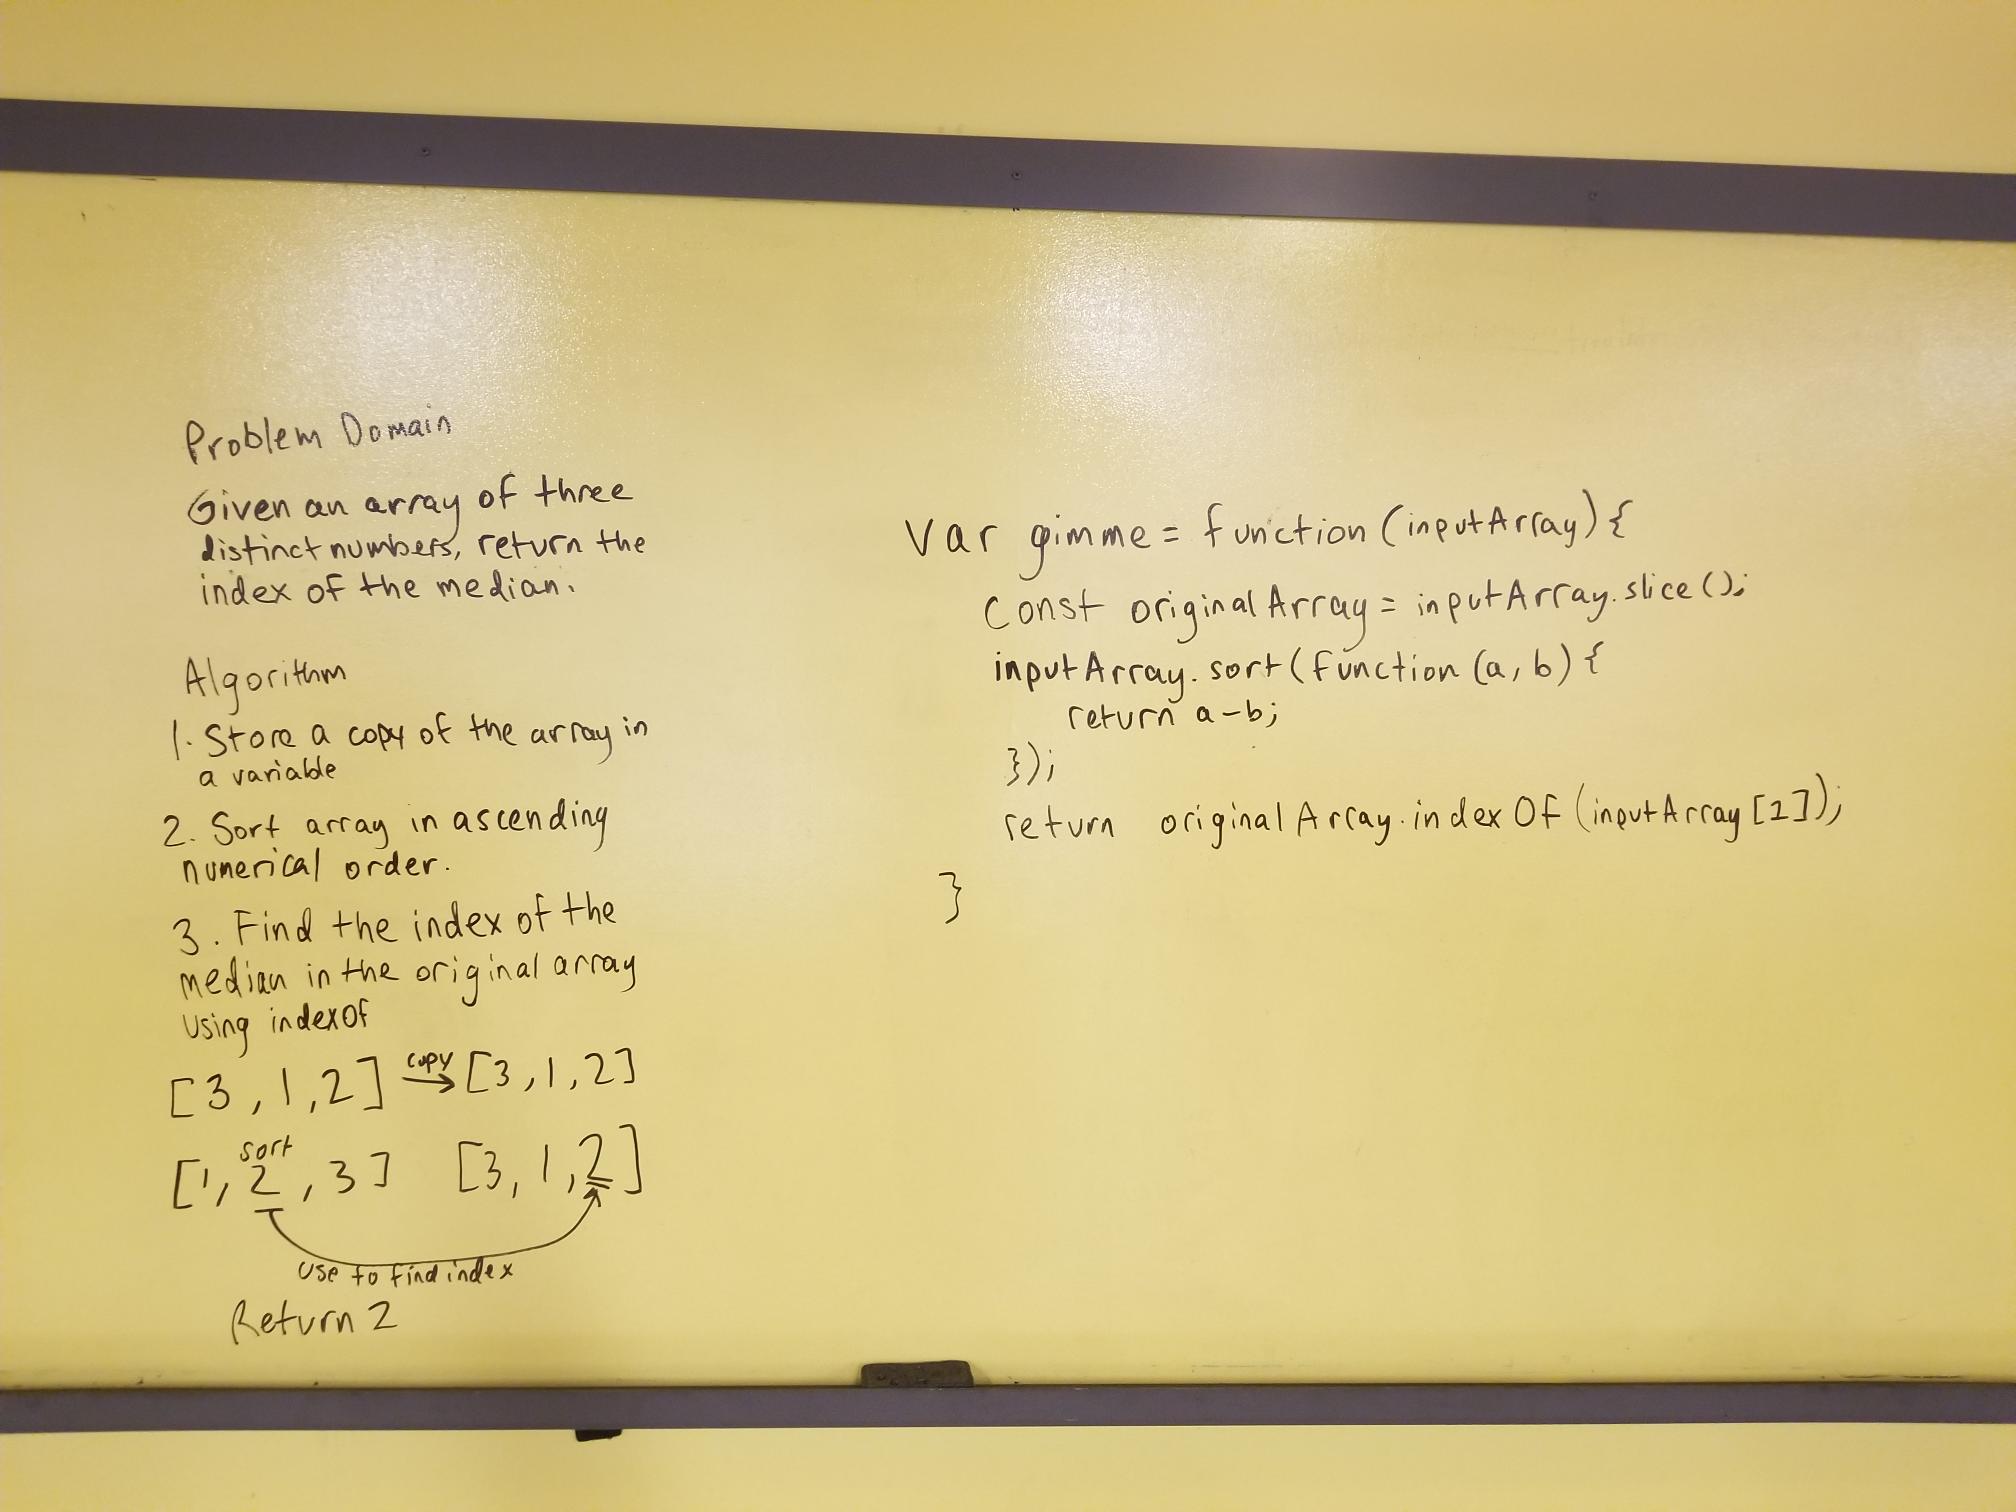 Problem Domain
Given an array of three
distinct numbers, return the
index of the median.
Algorithm
1. Store a copy of the array in
a variable
2. Sort array in ascending
numerical order.
3. Find the index of the
median in the original array
using indexOf
[3, 1, 2] copy [3, 1, 2]
sort
[1, 2, 3] [3, 1, 2]
use to find index
Return 2
var gimme = function (inputArray) {
const originalArray = inputArray.slice();
inputArray.sort(function (a, b) {
return a-b;
});
return originalArray.indexOf(inputArray[1]);
}